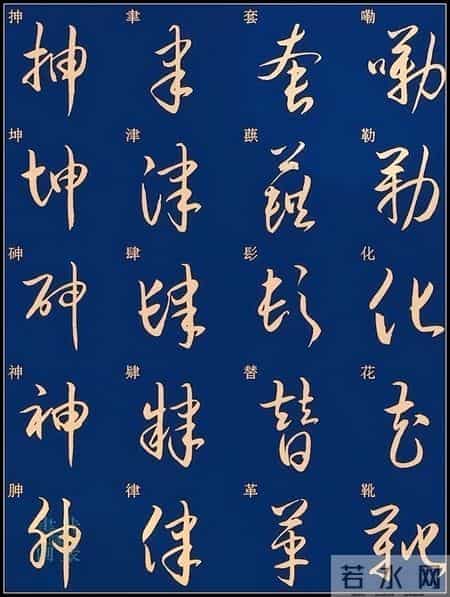 抻 聿 套 嘞
抻 聿 套 嘞
坤 津 蕻 勒
坤 津 蕻 勒
砷 肆 髟 化
砷 肆 髟 化
神 肄 替 花
神 肄 替 花
胂 律 革 靴
胂 律 革 靴
若水网